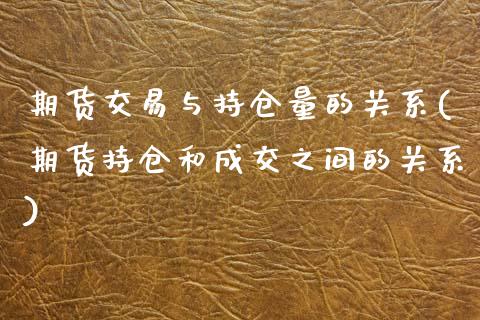 期货交易与持仓量的关系(
期货持仓和成交之间的关系
)